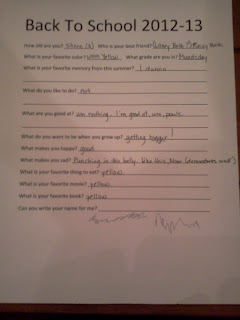 Back To School 2012-13
How old are you? Three (3) Who is your best friend?
What is your favorite color? Yellow What grade are you in? Mundsday
What is your favorite memory from this summer? I dunno
What do you like to do?
What are you good at? um nothing. I'm good at, um, pows.
What do you want to be when you grow up? getting bigger!
What makes you happy? good
What makes you sad? Punching in the belly. Like this. Now
What is your favorite thing to eat? yellow
What is your favorite movie? yellow
What is your favorite book? yellow
Can you write your name for me?